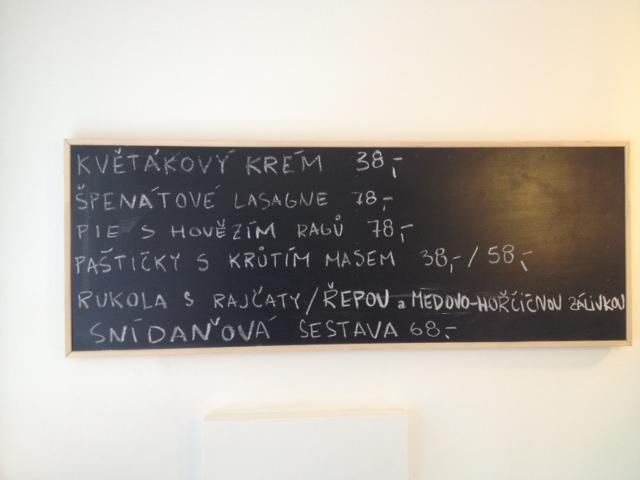 KVĚTÁKOVÝ KRÉM 38,-
ŠPENÁTOVÉ LASAGNE 78,-
PIE S HOVĚZÍM RAGŮ 78,-
PAŠTIČKY S KRŮTÍM MASEM 38,-/58,-
RUKOLA S RAJČATY/ŘEPOU a MEDOVO-HOŘČIČNOU ZÁLIVKOU
SNÍDAŇOVÁ SESTAVA 68.-